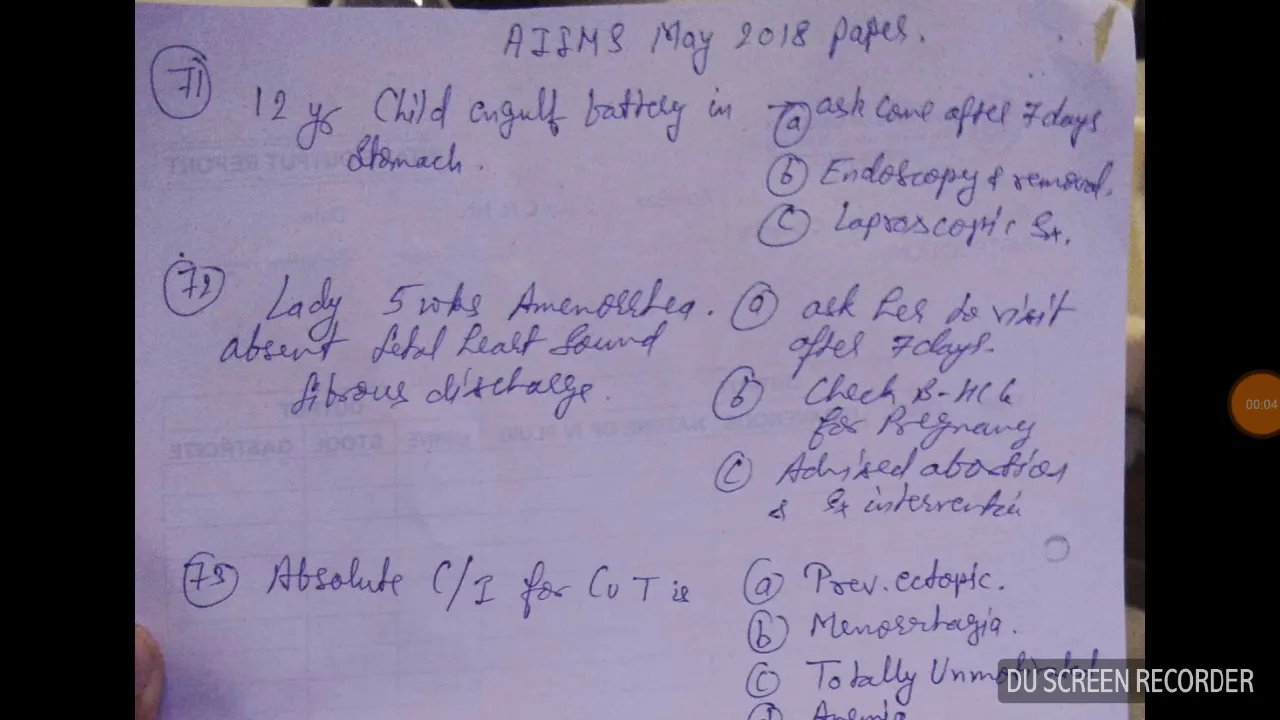 AIIMS May 2018 Paper.
71 12 yr Child engulf battery in Stomach.
a ask come after 7 days
b Endoscopy & removal.
c Laproscopic Sx.
72 Lady 5 wks Amenorrhea.
absent fetal heart sound
fibrous discharge.
a ask her to visit
after 7 days.
b Check B-HCG
for Pregnancy
c Advised abortion
& Sx interventin
73 Absolute C/I for CuT is
a Prev. ectopic.
b Menorrhagia.
c Totally
d Anemia
00:04
DU SCREEN RECORDER
STOOL